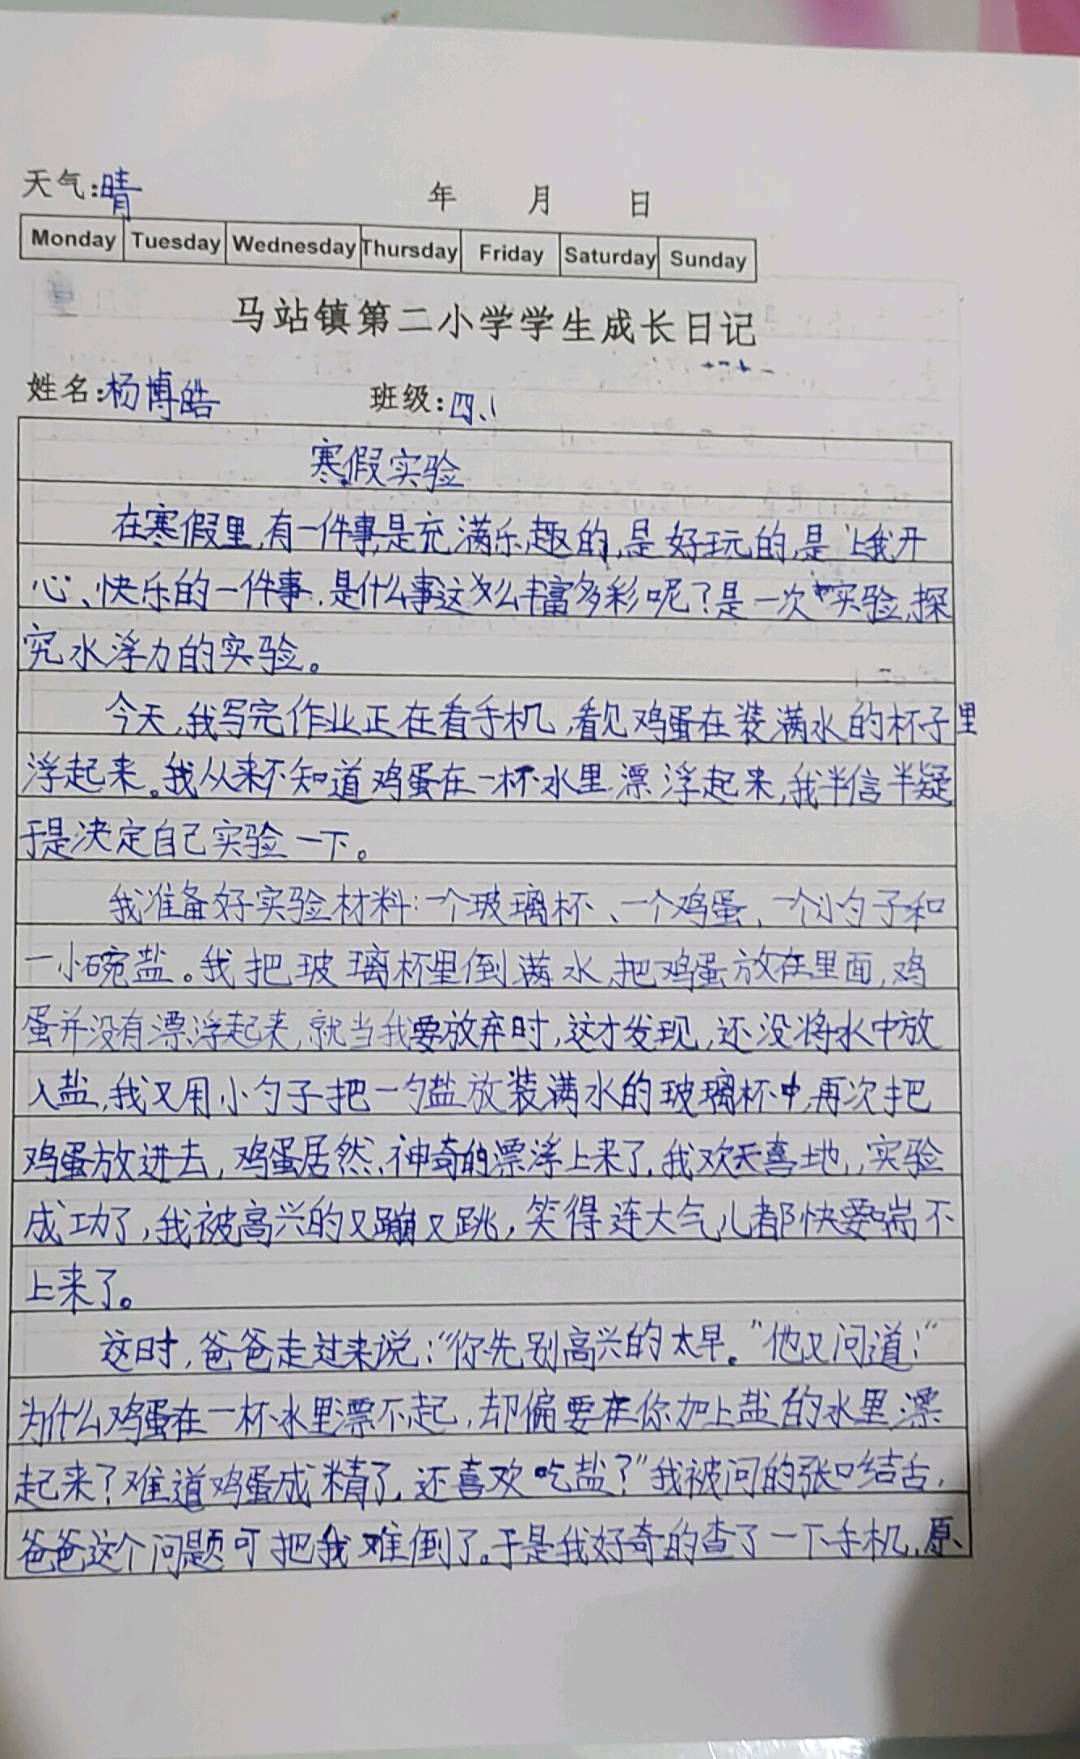 天气:晴 年 月 日
Monday Tuesday Wednesday Thursday Friday Saturday Sunday
马站镇第二小学学生成长日记
姓名:杨博皓 班级:四、1
寒假实验
在寒假里,有一件事,是充满乐趣的,是好玩的,是让我开
心、快乐的一件事,是什么事这么丰富多彩呢?是一次实验,探
究水浮力的实验。
今天,我写完作业正在看手机,看见鸡蛋在装满水的杯子里
浮起来。我从来不知道鸡蛋在一杯水里漂浮起来,我半信半疑
于是决定自己实验一下。
我准备好实验材料:一个玻璃杯、一个鸡蛋、一个小勺子和
一小碗盐。我把玻璃杯里倒满水,把鸡蛋放在里面,鸡
蛋并没有漂浮起来,就当我要放弃时,这才发现,还没将水中放
入盐,我又用小勺子把一勺盐放装满水的玻璃杯中,再次把
鸡蛋放进去,鸡蛋居然、神奇的漂浮上来了,我欢天喜地,实验
成功了,我被高兴的又蹦又跳,笑得连大气儿都快要喘不
上来了。
这时,爸爸走过来说:“你先别高兴的太早。”他又问道:“
为什么鸡蛋在一杯水里漂不起,却偏要在你加上盐的水里漂
起来?难道鸡蛋成精了,还喜欢吃盐?”我被问的张口结舌,
爸爸这个问题可把我难倒了。于是我好奇的查了一下手机,原